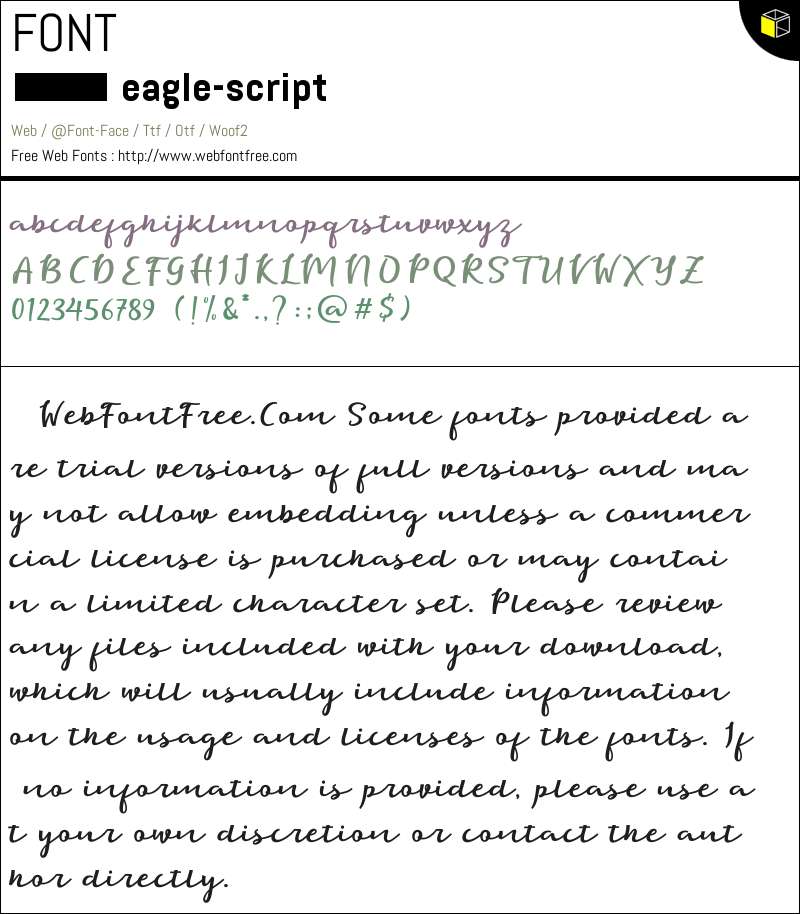 FONT
eagle-script
Web / @Font-Face / Ttf / Otf / Woof2
Free Web Fonts : http://www.webfontfree.com
abcdefghijklmnopqrstuvwxyz
ABCDEFGHIJKLMNOPQRSTUVWXYZ
0123456789 (!%&*.,?:;@#$)
WebFontFree.Com Some fonts provided a
re trial versions of full versions and ma
y not allow embedding unless a commer
cial license is purchased or may contai
n a limited character set. Please review
any files included with your download,
which will usually include information
on the usage and licenses of the fonts. If
no information is provided, please use a
t your own discretion or contact the aut
hor directly.